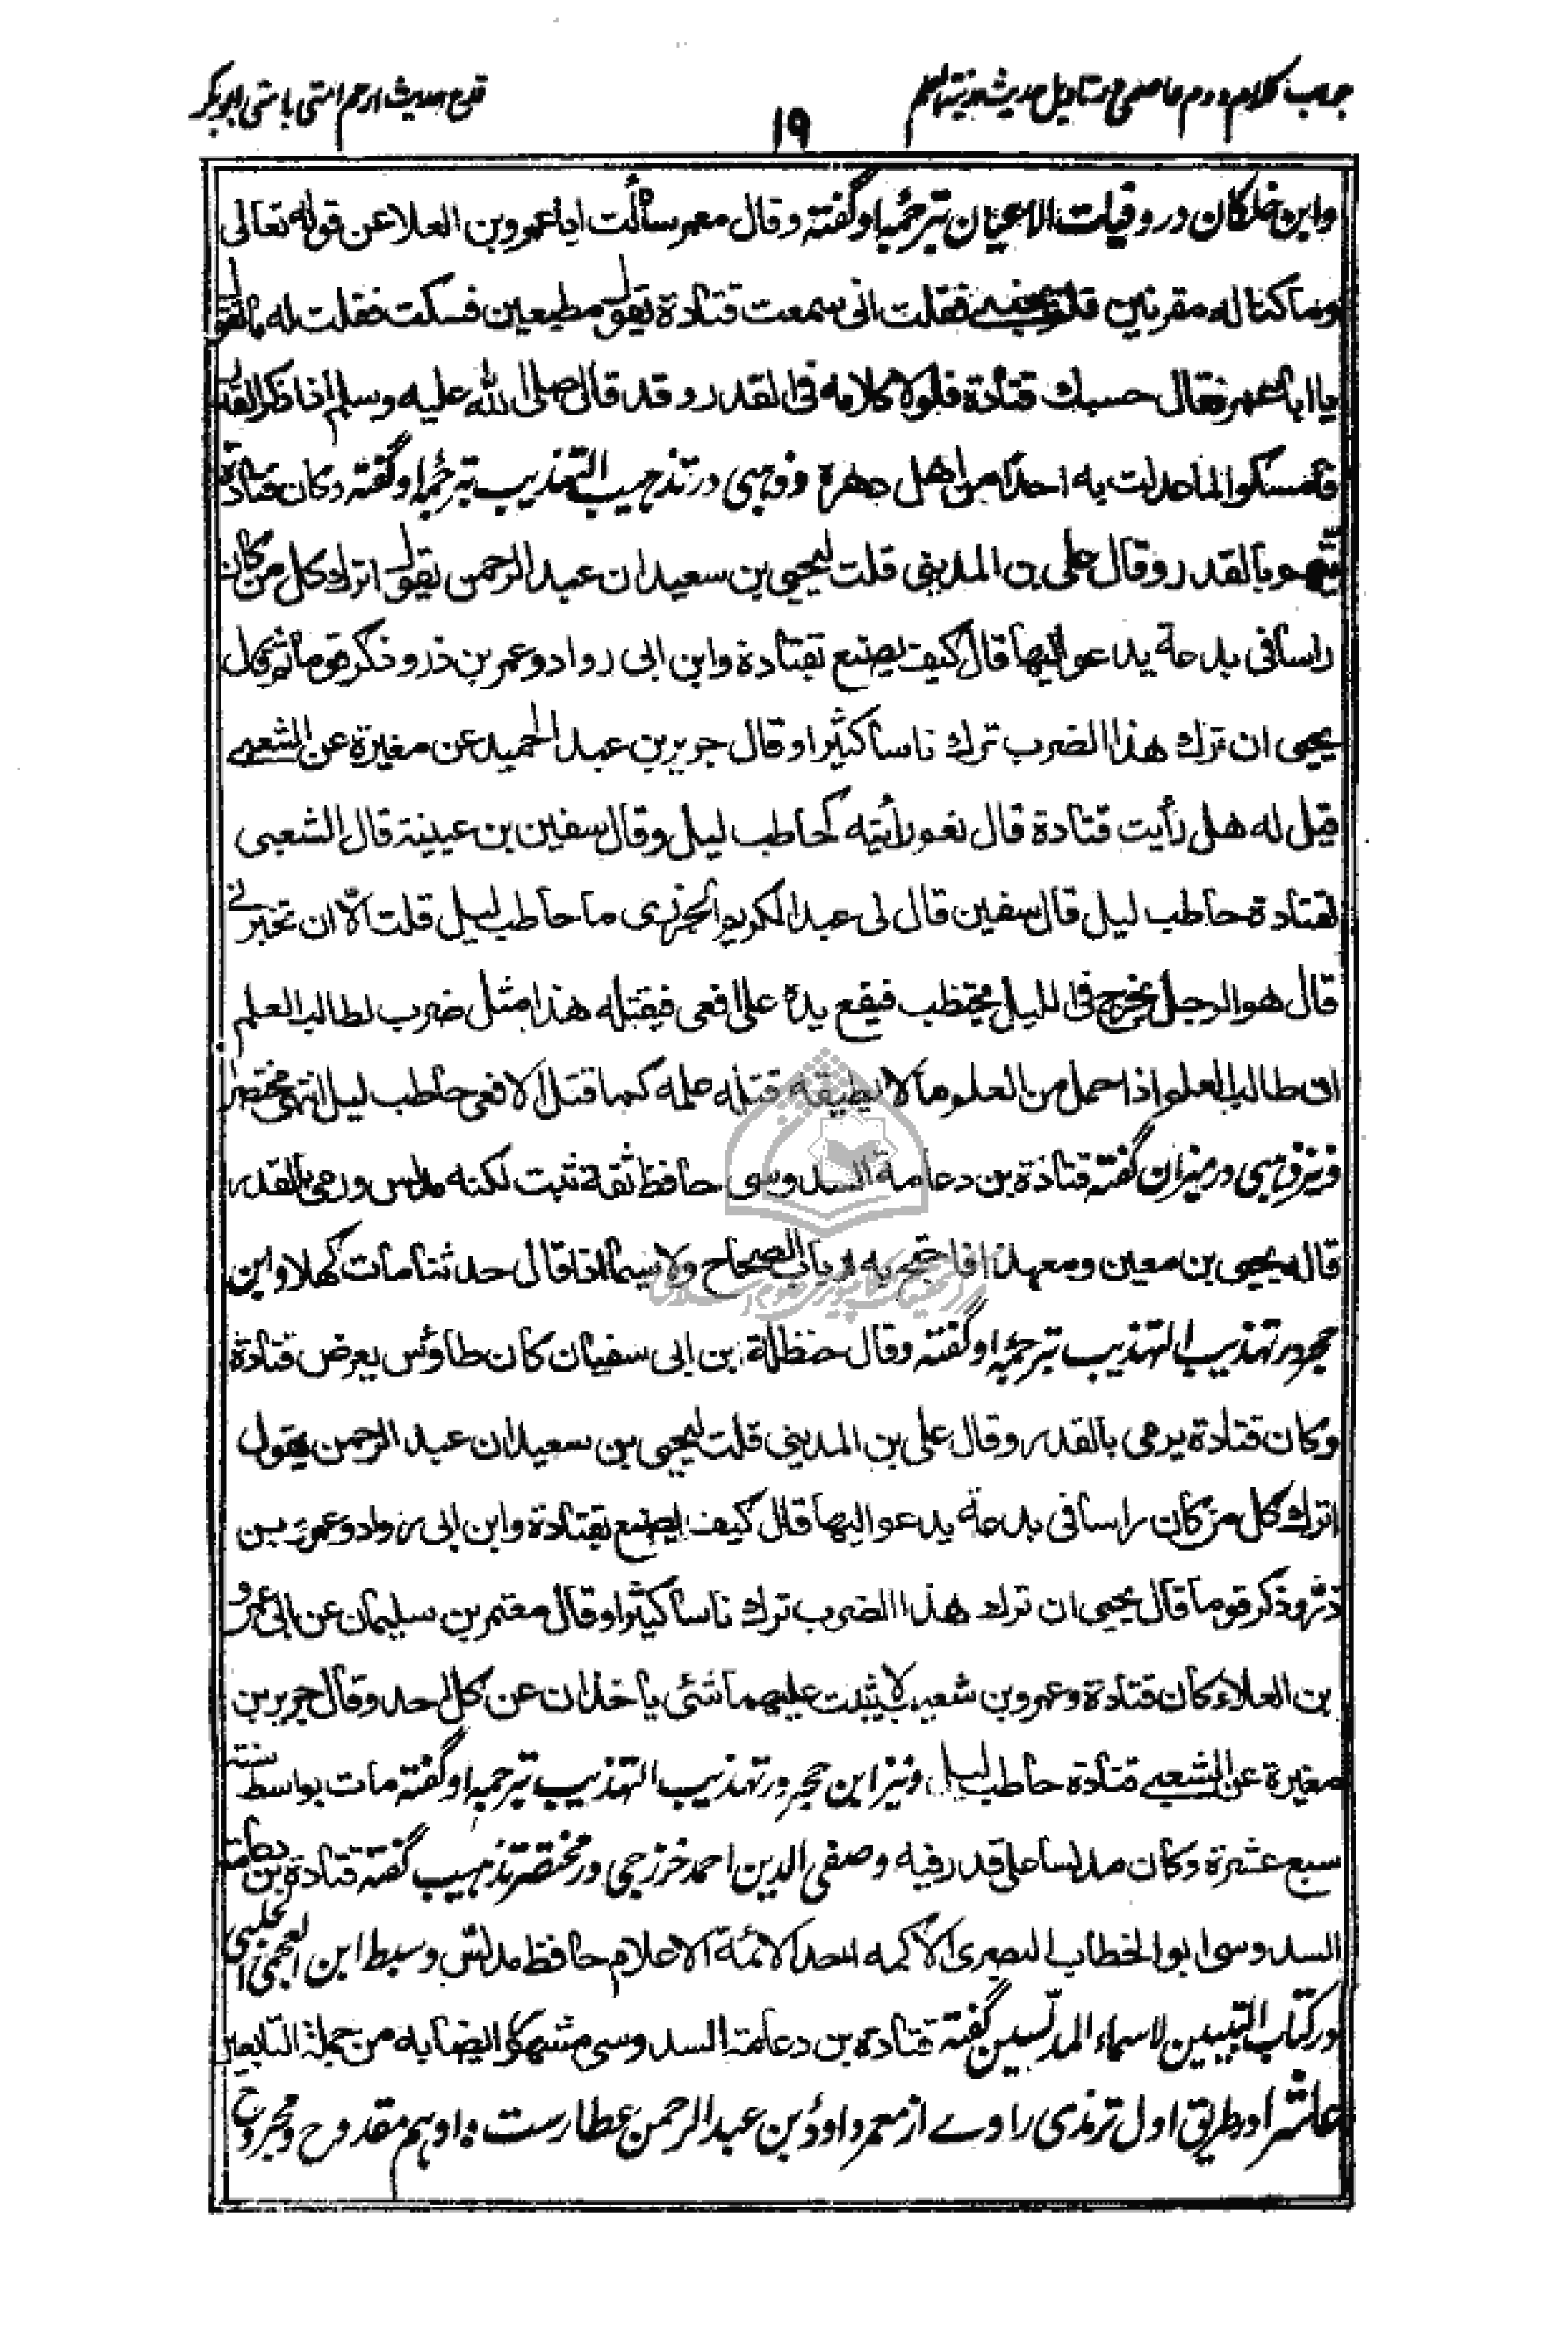 جواب كلام دوم عاصمی در تاویل حدیث مدینة العلم
قدح حدیث ارحم امتی بامتی ابوبکر
۱۹
وابن خلكان در وفيات الاعيان بترجمۀ او گفته وقال معمر سألت ابا عمرو بن العلا عن قوله تعالى
وما كنا له مقرنين فلم يجبنى فقلت انى سمعت قتادة يقول مطيعين فسكت فقلت له ما تقول
يا ابا عمرو فقال حسبك قتادة فلولا كلامه فى القدر وقد قال صلى الله عليه وسلم اذا ذكر القدر
فامسكوا لما عدلت به احدا من اهل دهره وذهبى در تذهيب التهذيب بترجمۀ او گفته وكان قتادة
يتهم بالقدر وقال على بن المدينى قلت ليحيى بن سعيد ان عبد الرحمن يقول اترك كل من كان
راسا فى بدعة يدعو اليها قال كيف يصنع بقتادة وابن ابى رواد وعمر بن ذر وذكر قوما ثم قال
يحيى ان ترك هذا الضرب ترك ناسا كثيرا وقال جرير بن عبد الحميد عن مغيرة عن الشعبى
قيل له هل رأيت قتادة قال نعم رأيته كحاطب ليل وقال سفين بن عيينة قال الشعبى
لقتادة حاطب ليل قال سفين قال لى عبد الكريم الجزرى ما حاطب ليل قلت لا الا ان تخبرنى
قال هو الرجل يخرج فى الليل يحتطب فيقع يده على افعى فيقتله هذا مثل ضرب لطالب العلم
ان طالب العلم اذا حمل من العلم ما لا يطيقه قتله علمه كما قتل الافعى حاطب ليل انتهى مختصرا
ونيز ذهبى در ميزان گفته قتادة بن دعامة السدوسى حافظ ثقة ثبت لكنه مدلس ورمى بالقدر
قاله يحيى بن معين ومع هذا فاحتج به ارباب الصحاح ولا سيما اذا قال حدثنا مات كهلا وابن
حجر در تهذيب التهذيب بترجمۀ او گفته وقال حنظلة بن ابى سفيان كان طاؤس يعرض قتادة
وكان قتادة يرمى بالقدر وقال على بن المدينى قلت ليحيى بن سعيد ان عبد الرحمن يقول
اترك كل من كان راسا فى بدعة يدعو اليها قال كيف يصنع بقتادة وابن ابى رواد وعمر بن
ذر وذكر قوما قال يحيى ان ترك هذا الضرب ترك ناسا كثيرا وقال معتمر بن سليمان عن ابى عمرو
بن العلاء كان قتادة وعمرو بن شعيب لا يثبت عليهما شئ ياخذان عن كل احد وقال جرير بن
مغيرة عن الشعبى قتادة حاطب ليل ونيز ابن حجر در تهذيب التهذيب بترجمه او گفته مات بواسط سنة
سبع عشرة وكان مدلسا على قدر فيه وصفى الدين احمد خزرجى در مختصر تذهيب گفته قتادة بن دعامة
السدوسى ابو الخطاب البصرى الاكمه احد الائمة الاعلام حافظ مدلس وسبط ابن العجمى الحلبى
در كتاب التبيين لاسماء المدلسين گفته قتادة بن دعامة السدوسى مشهور ايضا به من جملة التابعين
عاشر او در طريق اول ترمذى راوى از معمر داود بن عبد الرحمن عطارست و او هم مقدوح و مجروح